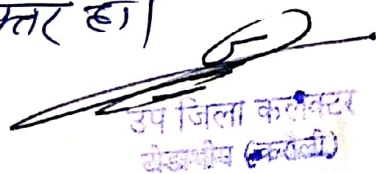 स्तर हो।
उप जिला कलेक्टर
टोडाभीम (करौली)